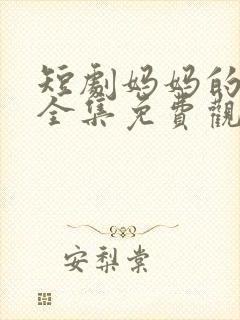 短劇媽媽的
全集免費觀
安梨棠